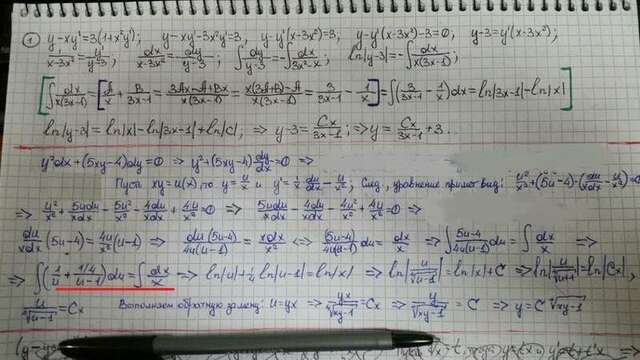 ① y-xy'=3(1+x²y'), y-xy'-3x²y'=3, y-y'(x-3x²)=3, y-y'(x-3x²)-3=0, y-3=y'(x-3x²);
1/(x-3x²)=y'/(y-3), dx/(x-3x²)=dy/(y-3); ∫dy/(y-3)=-∫dx/(3x²-x); ln|y-3|=-∫dx/(x(3x-1));
[∫dx/(x(3x-1))=[A/x+B/(3x-1)=(3Ax-A+Bx)/(x(3x-1))=(x(3A+B)-A)/(x(3x-1))=3/(3x-1)-1/x]=∫(3/(3x-1)-1/x)dx=ln|3x-1|-ln|x|]
ln|y-3|=ln|x|-ln|3x-1|+ln|C|; ⇒ y-3=Cx/(3x-1); ⇒ y=Cx/(3x-1)+3.
y²dx+(5xy-4)dy=0 ⇒ y²+(5xy-4)dy/dx=0 ⇒
Пусть xy=u(x), то y=u/x и y'=1/x du/dx-u/x²; След, уравнение примет вид: u²/x²+(5u-4)·(du/xdx-u/x²)=0
⇒ u²/x²+5udu/xdx-5u²/x²-4du/xdx+4u/x²=0 ⇒ 5udu/xdx-4du/xdx-4u²/x²+4u/x²=0 ⇒
du/xdx(5u-4)=4u/x²(u-1) ⇒ du(5u-4)/4u(u-1)=xdx/x² ⇔ (5u-4)/4u(u-1)du=dx/x ⇒ ∫(5u-4)/4u(u-1)du=∫dx/x ⇒
⇒ ∫(1/u+(1/4)/(u-1))du=∫dx/x ⇒ ln|u|+1/4ln|u-1|=ln|x| ⇒ ln|u/∜(u-1)|=ln|x|+C ⇒ ln|u/∜(u-1)|=ln|Cx|,
u/∜(u-1)=Cx Выполняем обратную замену: u=yx ⇒ yx/∜(xy-1)=Cx ⇒ y/∜(xy-1)=C ⇒ y=C∜(xy-1)